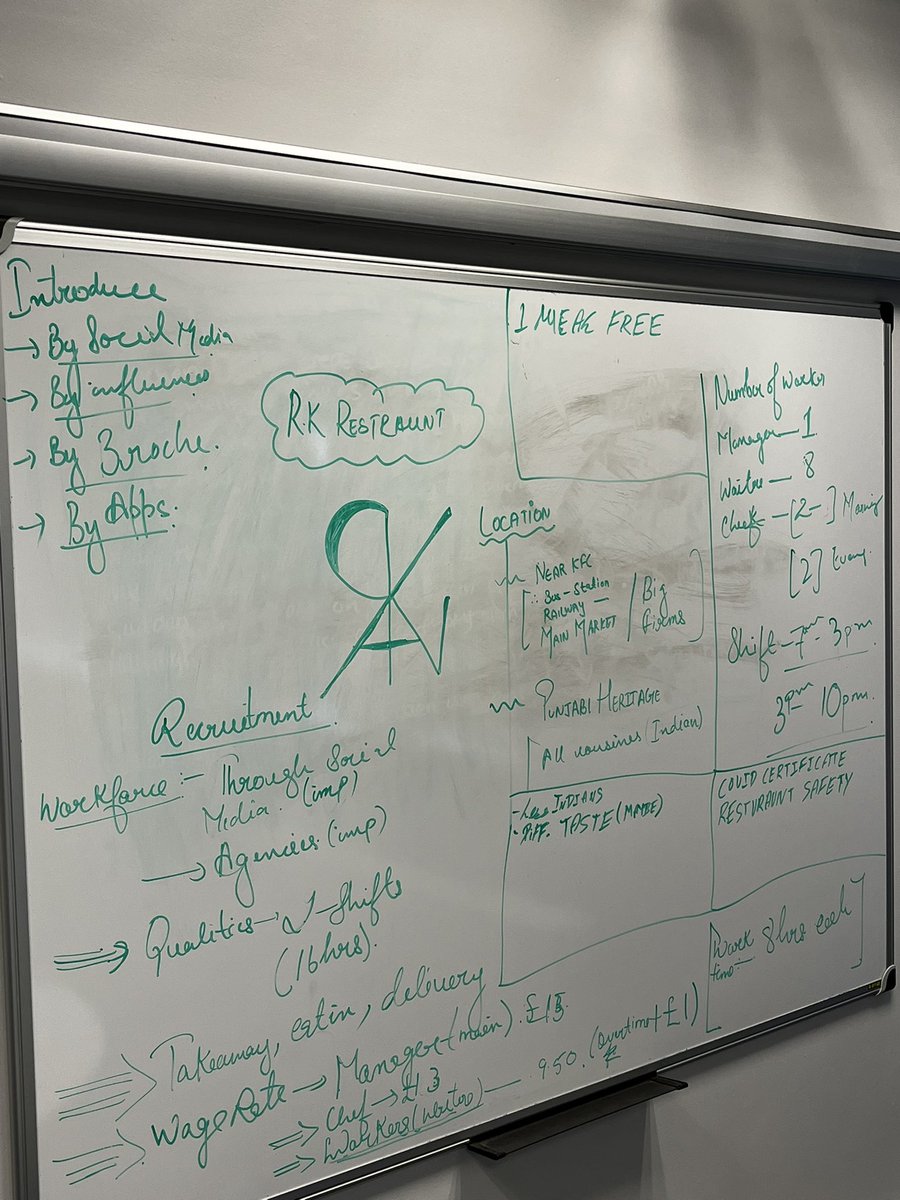 Introduce
→ By Social Media
→ By influences
→ By Broche.
→ By Apps.
R.K RESTRAUNT
Recruitment
Workforce :- Through Social
Media. (imp)
→ Agencies (imp)
Qualities → Shifts
(16 hrs).
Takeaway, eatin, delivery
Wage Rate → Manager (main). £15
Chef → £13
Workers (waitors) — 9.50. (overtime + £1)
1 MEAL FREE
LOCATION
NEAR KFC
∴ Bus-Station
RAILWAY —
MAIN MARKET / Big
firms
PUNJABI HERITAGE
All cousines (Indian)
- Less INDIANS
- DIFF. TASTE (MAYBE)
Number of worker
Manager — 1
Waitre — 8
Cheek — [2-] Morning
[2] Evany.
Shift — 7am - 3pm
3pm - 10pm.
COVID CERTIFICATE
RESTURAUNT SAFETY
Work 8hrs each
time:-